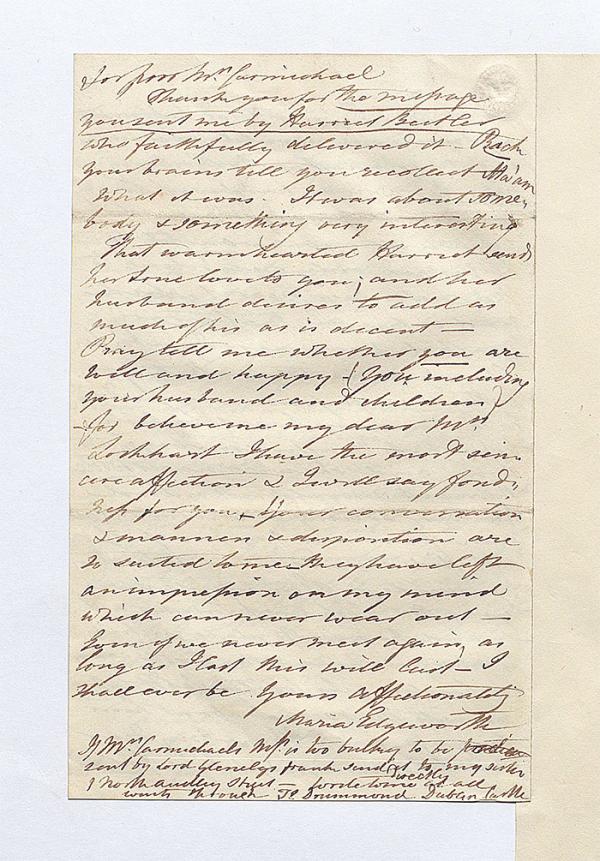 for poor Mrs Carmichael
Thank you for the message
you sent me by Harriet Butler
who faithfully delivered it – Rack
your brains till you recollect Ma'am
what it was. It was about some-
body & something very interesting
That warmhearted Harriet sends
her true love to you; and her
husband desires to add as
much of his as is decent –
Pray tell me whether you are
well and happy – (You including
your husband and children)
– for believe me my dear Mrs
Lockhart I have the most sin-
cere affection & I will say fond-
ness for you – Your conversation
& manners & disposition are
so suited to me – they have left
an impression on my mind
which can never wear out –
Even if we never meet again, as
long as I last this will last – I
shall ever be Yours affectionately
Maria Edgeworth
If Mrs Carmichaels MS. is too bulky to be
sent by Lord Glenelgs frank send it to my sister
1 North Audley Street – directly
through Drummond Dublin Castle